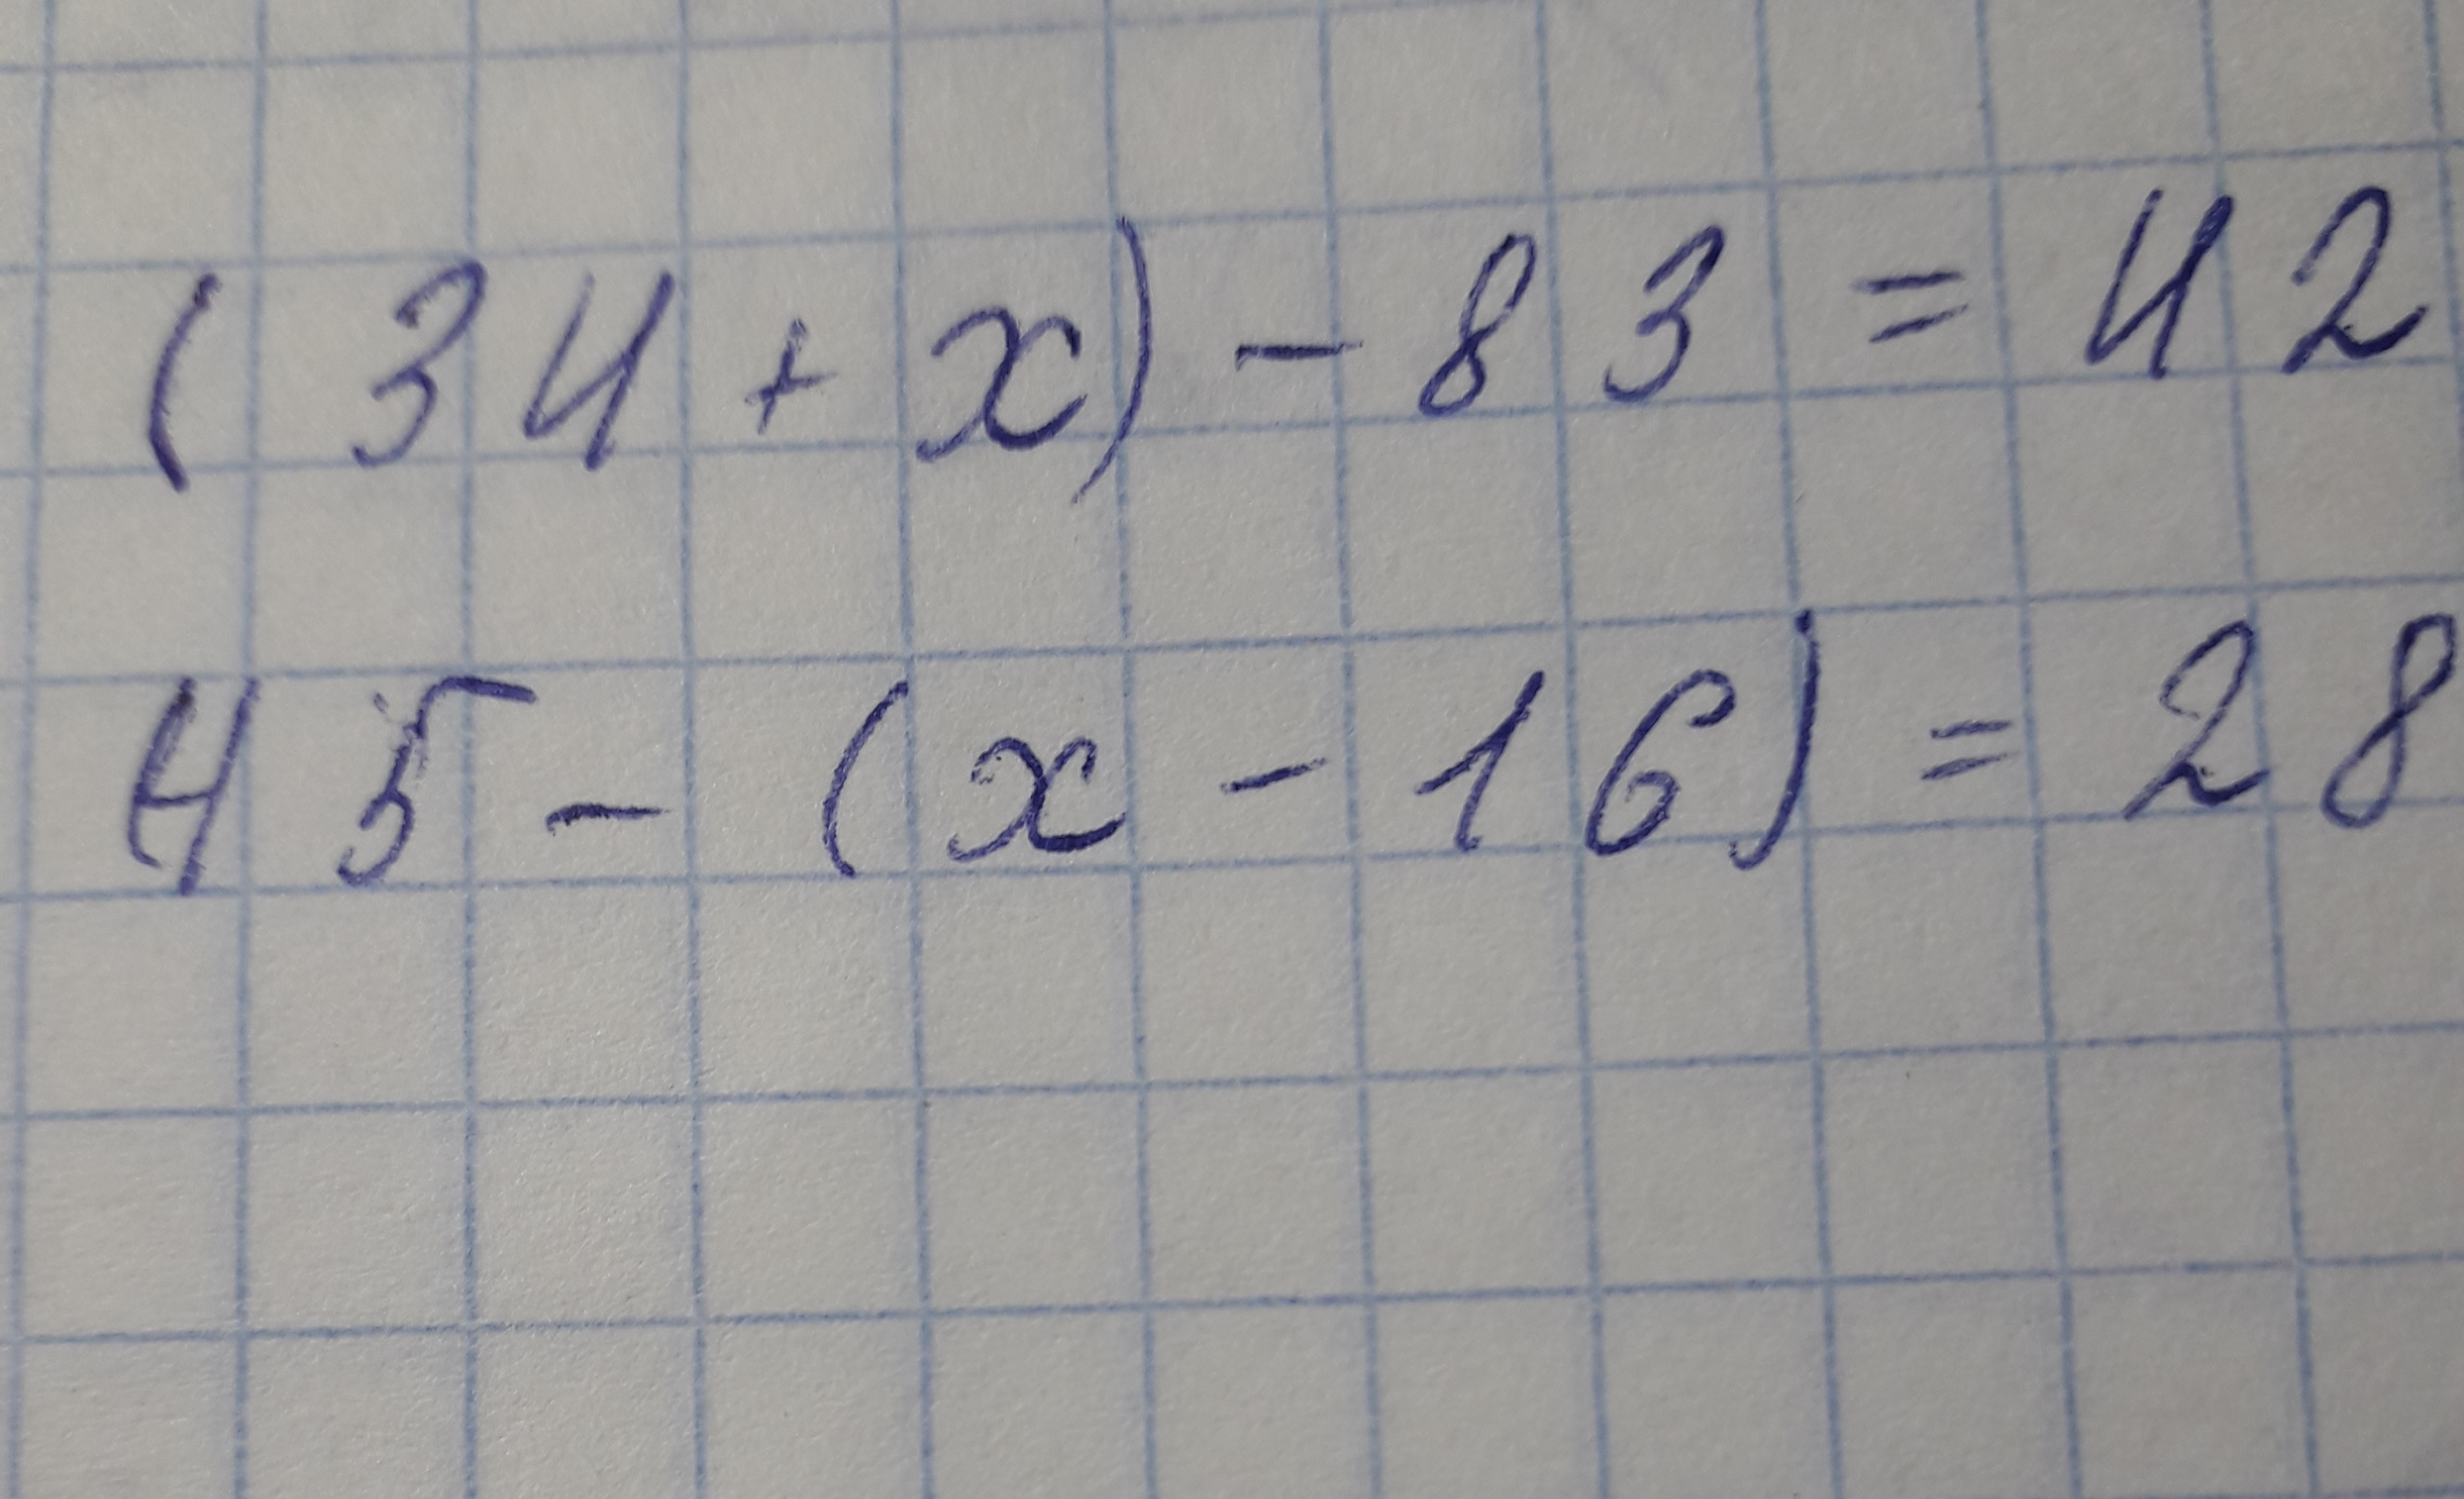 (34+x)-83=42
45-(x-16)=28